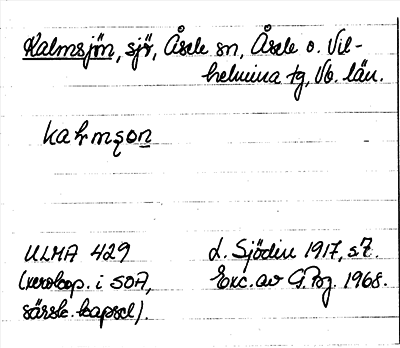 Kalmsjön, sjö, Åsele sn, Åsele o. Vil-
helmina tg, Vb. län.
kaḷmʂon
ULMA 429
(xerokop. i SOA,
särsk. kapsel).
L. Sjödin 1917, s7.
Exc. av G.Bg. 1968.